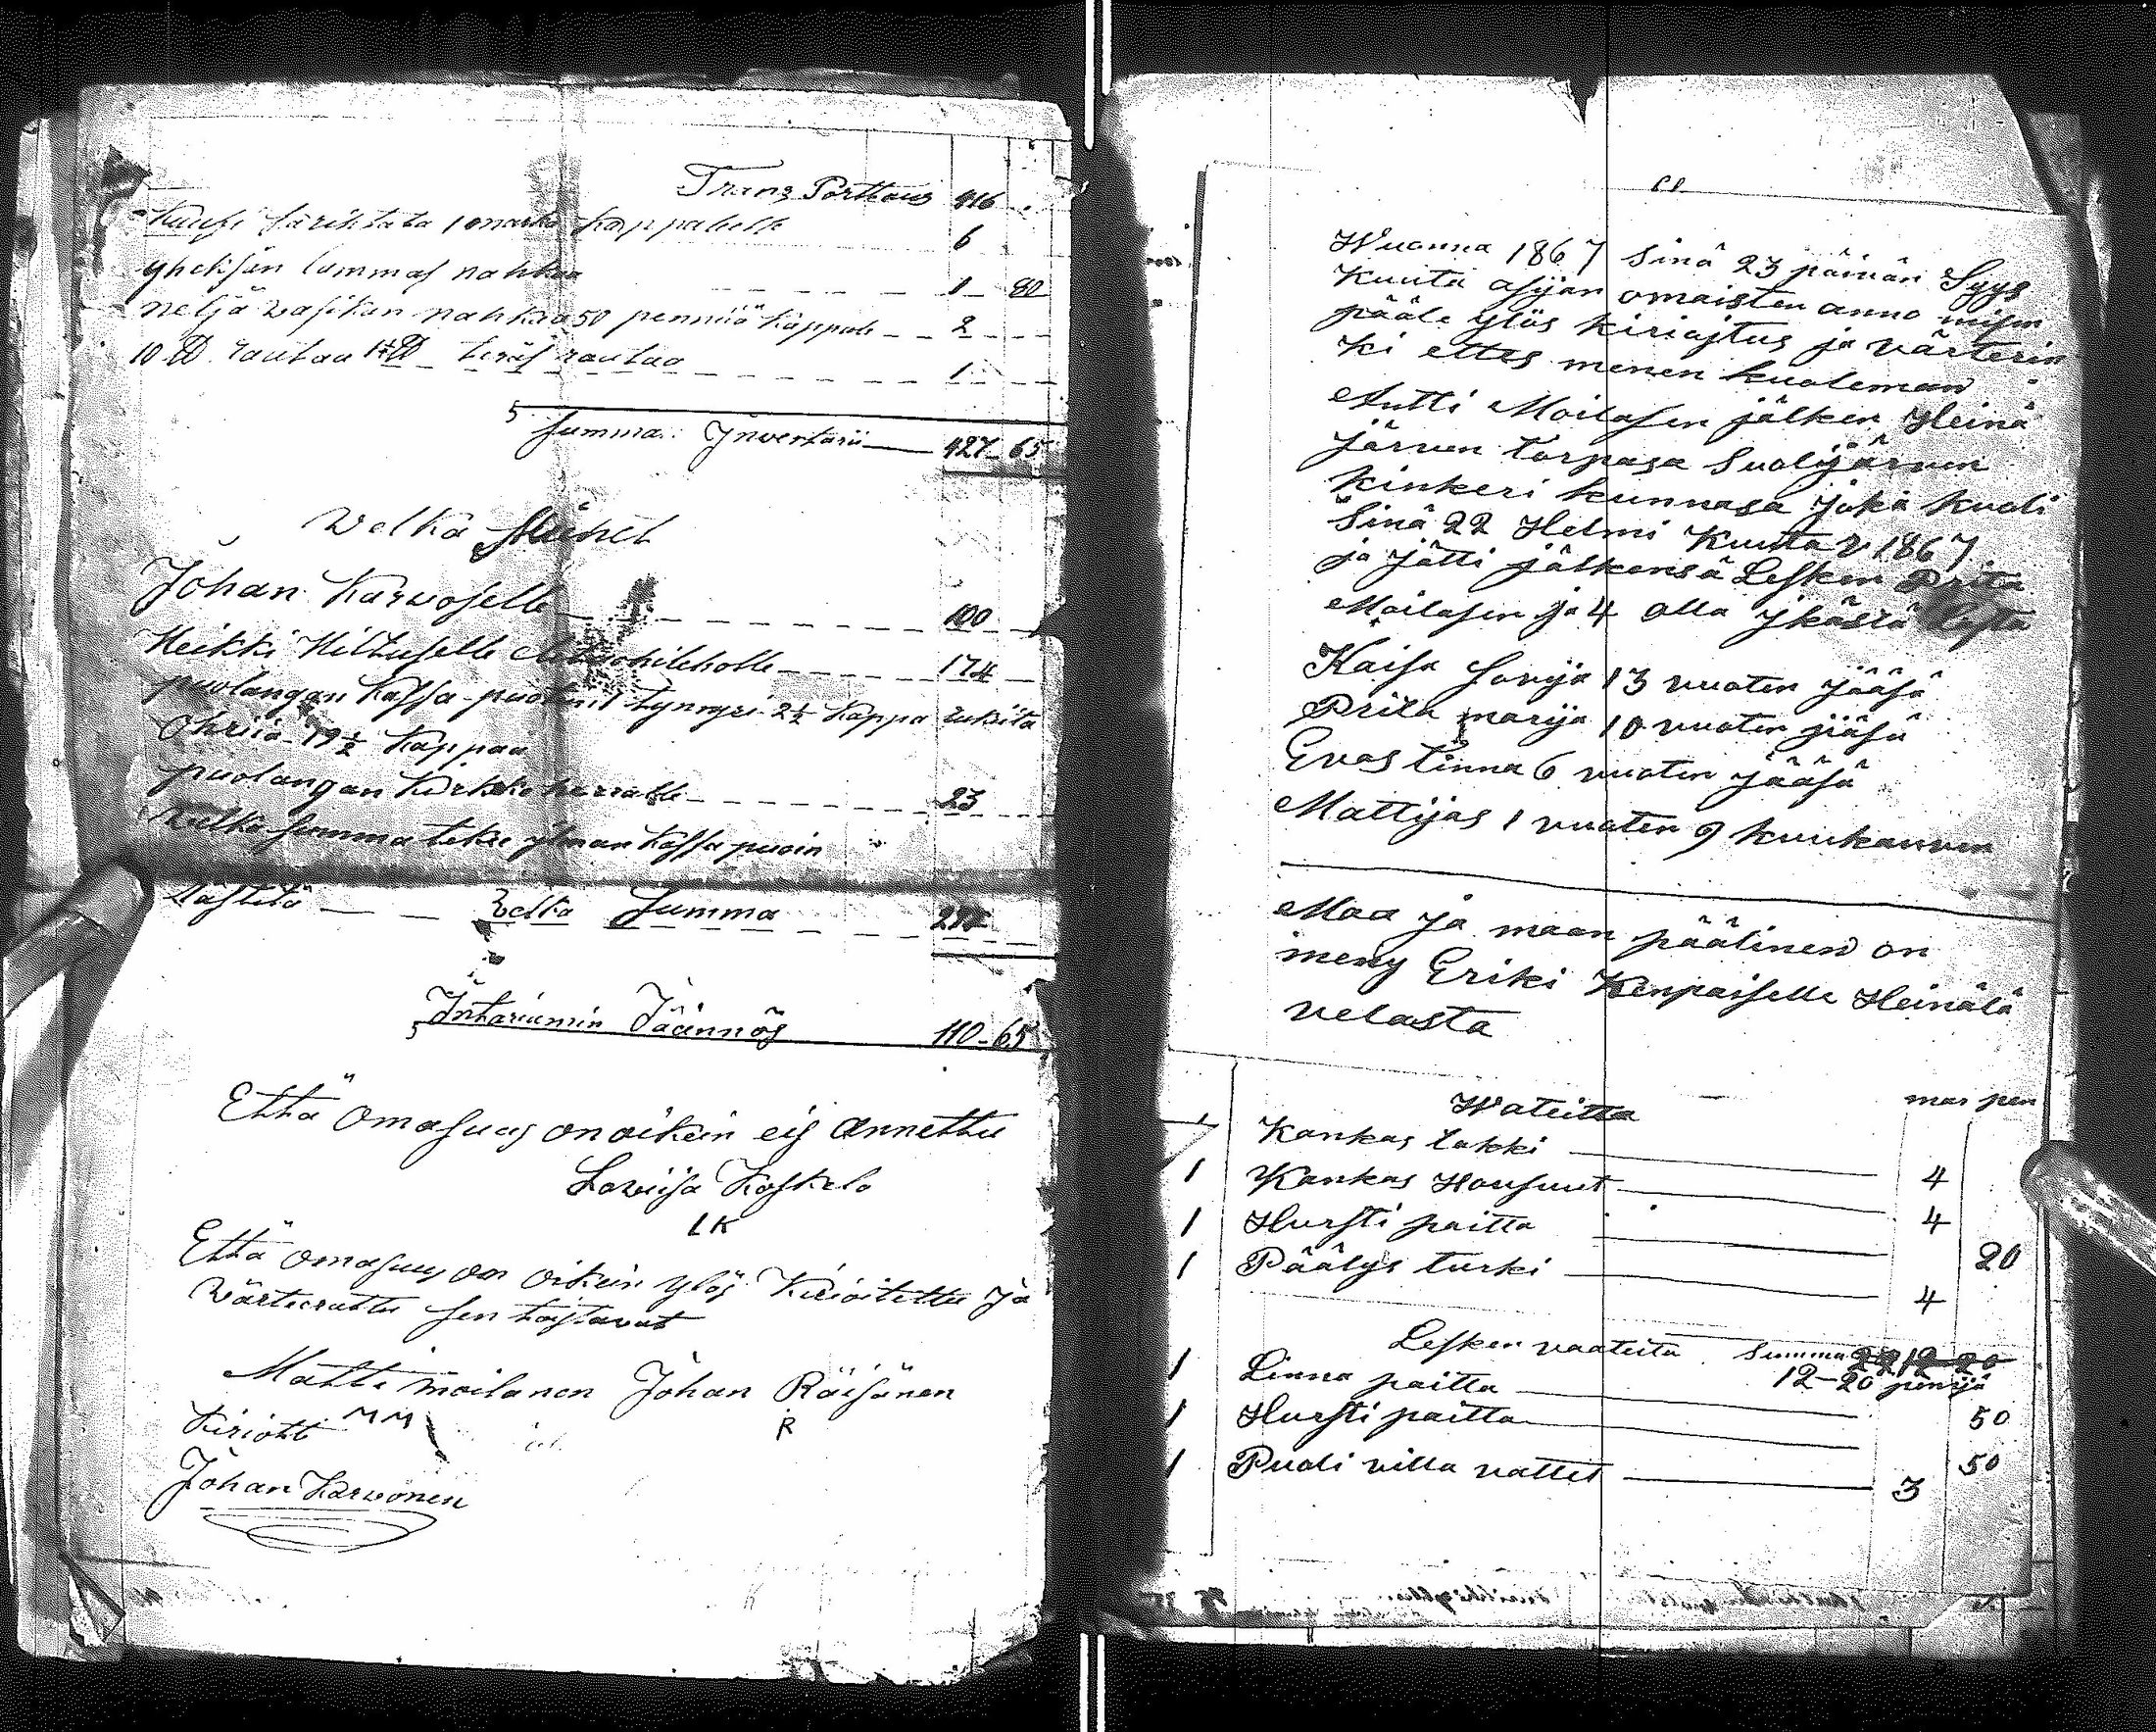 Trans Porttaus 416
Kuusi Särihtata 1 markka kappaleelle 6
yheksän lammas nahkaa 1 80
neljä vasikan nahkaa 50 penniä kappale 2
10 ℔ rautaa 1 ℔ teräs rautaa 1
Summa: Ynventarii 427 65
Welka
Johan Karvoselle 100
Heikki Hiltuselle 174
puolangan Kassa puotiin 1 tynnyri 2½ Kappa rukiita
Ohriia 19½ Kappaa
puolangan Kirkkoherralle 23
Kulka Summa tekee ilman Kassa puoin
Velka Summa 297
Jäännös 110 65
Että Omasuus on oikein eis annettu
Loviisa Koskelo
LK
Että omasuus on oikein ylös Kirioitettu ja
Värteerattu sen toistavat
Matti Moilanen Johan Räisänen
MM R
Kirjotti
Johan Karvonen
Wuonna 1867 sinä 23 päivän Syys
Kuuta asijan omaisten anno
pääle ylös kiriajtus ja värterin
ki ettes menen kuoleman
Antti Moilasen jälken Heinä
järven torpasa Suolijärven
kinkeri kunnasa joka kuoli
Sinä 22 Helmi Kuuta v 1867
ja jätti jälkensä Lesken Prita
Moilasen ja 4 alla ykästä Lasta
Kaisa Sovija 13 vuoten jääsä
Prita marija 10 vuoten jääsä
Evas tinna 6 vuoten jääsä
Mattijas 1 vuoten 9 kuukauven
Maa ja maan päälinen on
meny Eriki Kenpaiselle Heinälä
velasta
Wateitta mar pen
Kankas takki 4
1 Kankas Housuut 4
1 Hursti paitta 20
1 Päälys turki 4
Lesken vaateita Summa 12 20
12-20 penijä
1 Linna paitta 50
1 Hursti paitta 50
1 Puoli villa vattet 3